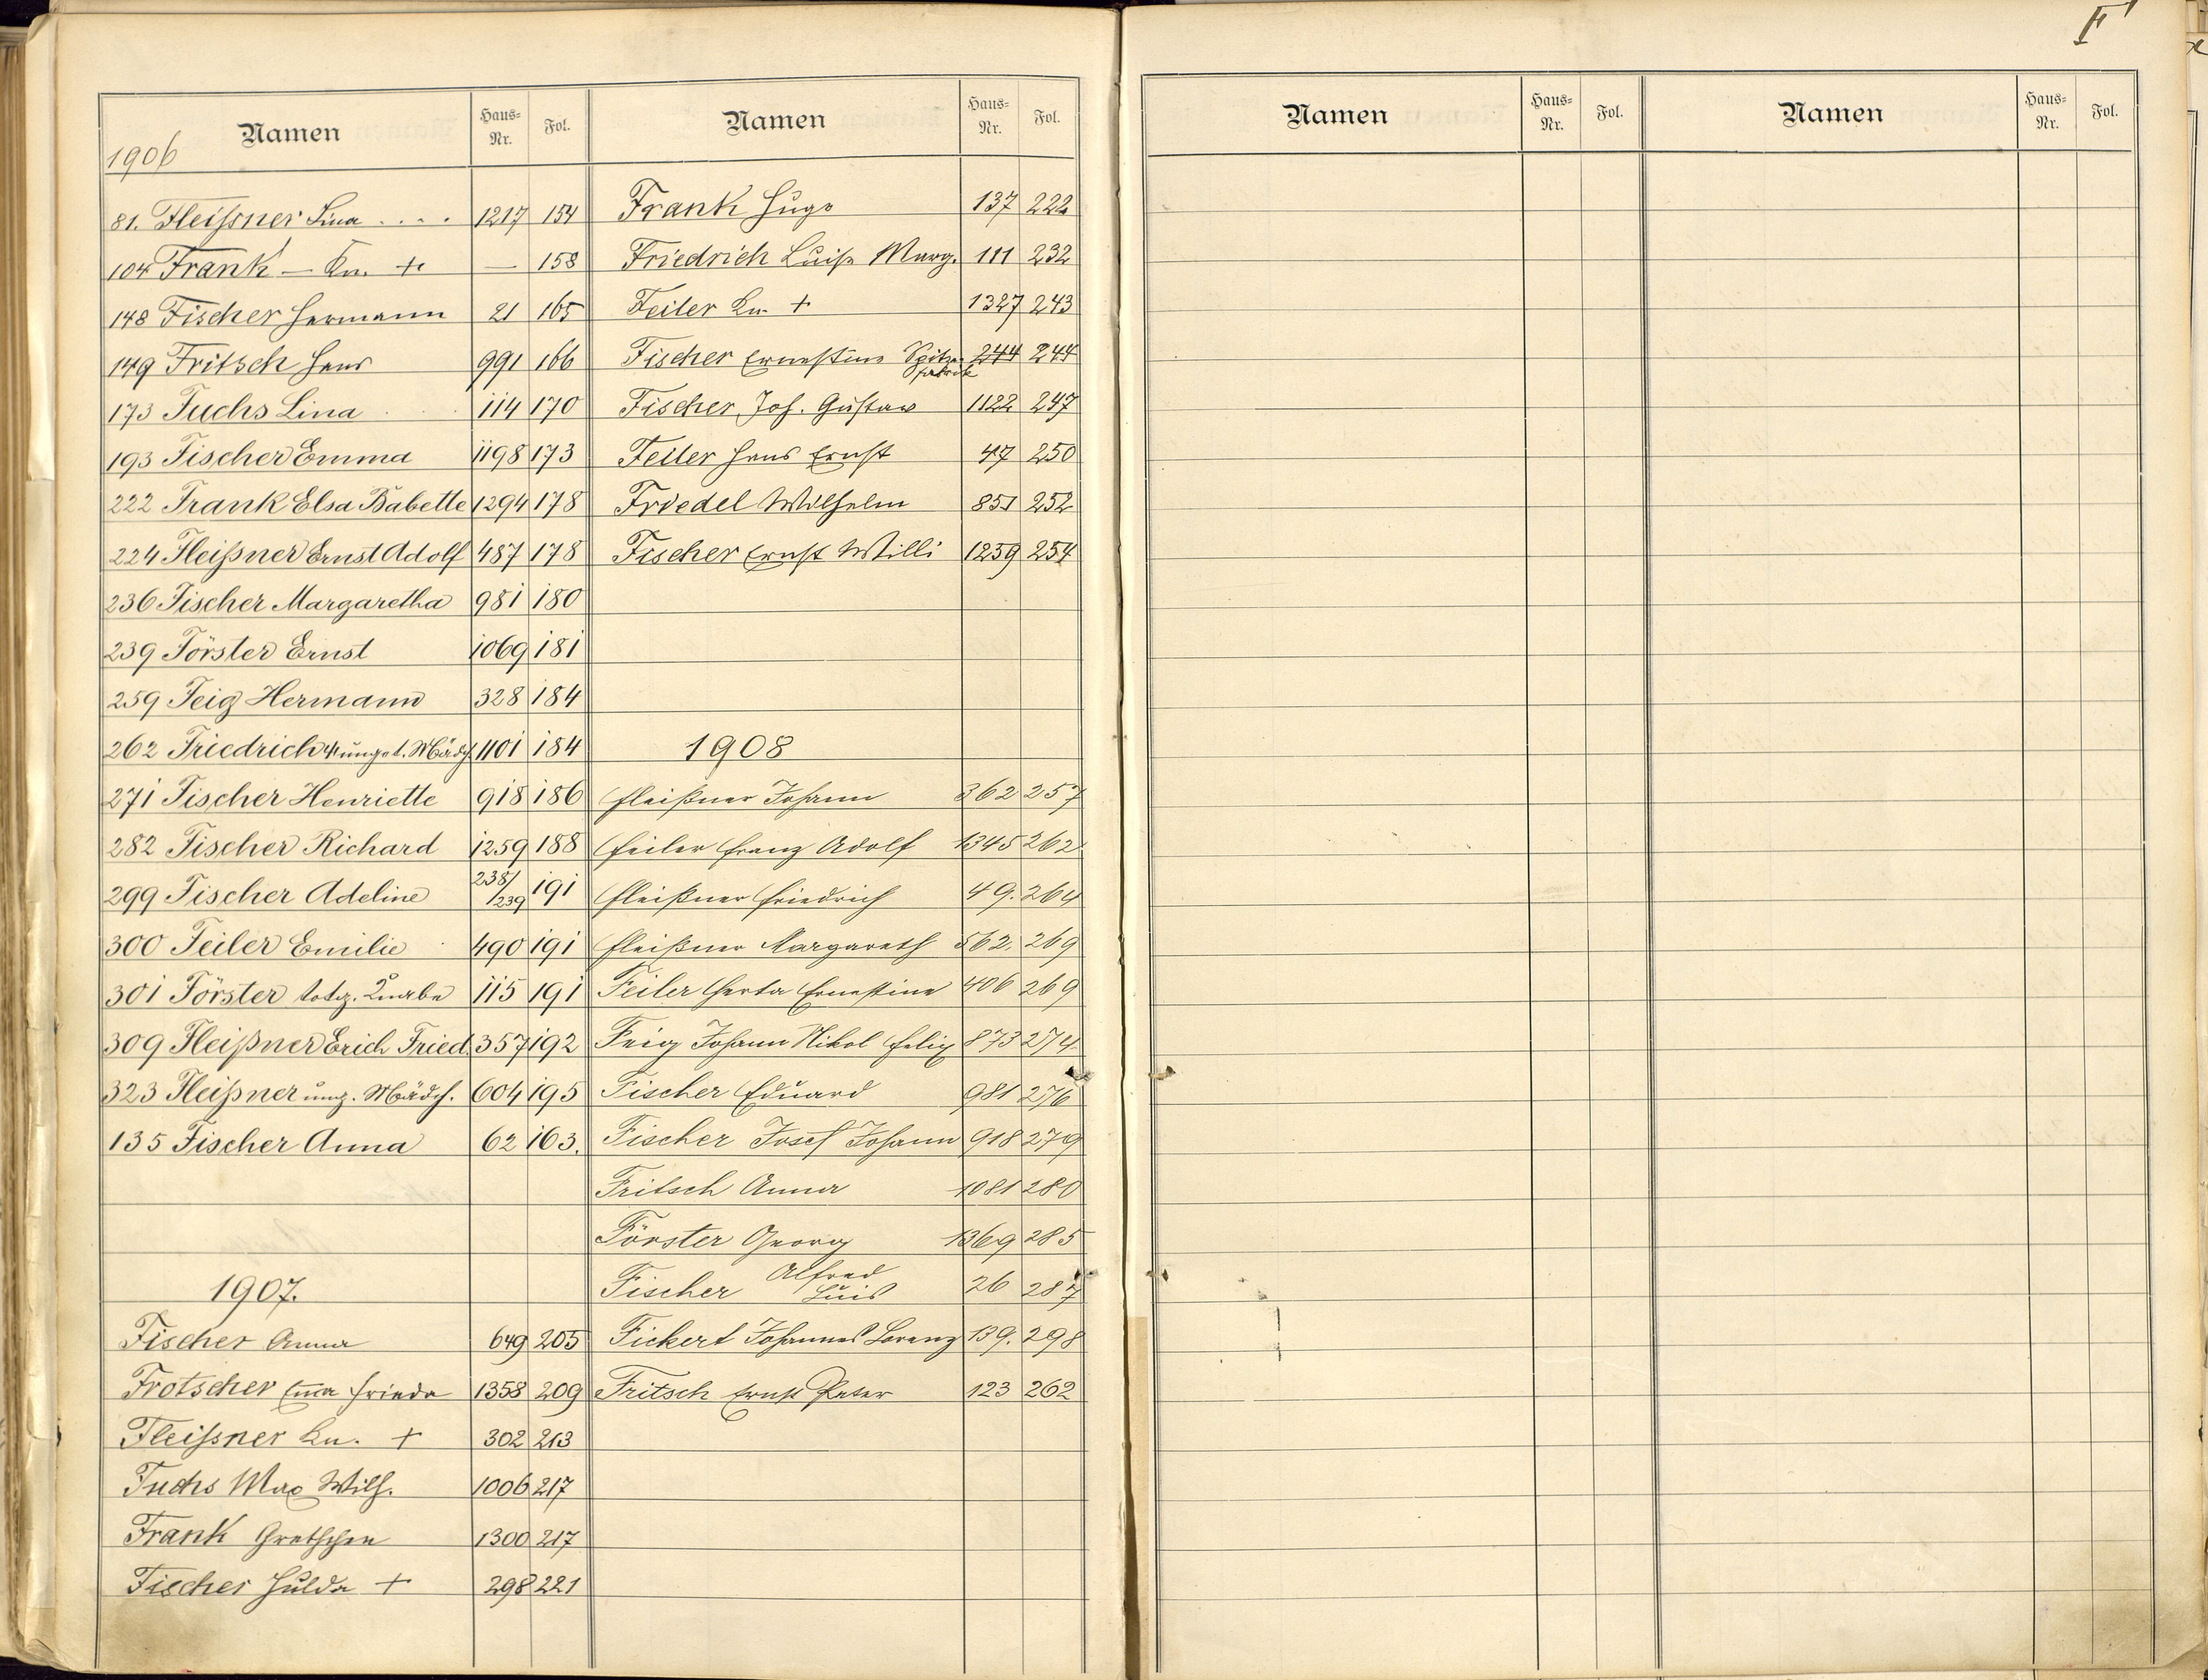 F
Namen Haus-Nr. Fol.
1906
81. Fleißner Lina .... 1217 154
104 Frank — Kn. + — 158
148 Fischer Hermann 21 165
149 Fritsch Hans 991 166
173 Fuchs Lina 114 170
193 Fischer Emma 1198 173
222 Frank Elsa Babette 1294 178
224 Fleißner Ernst Adolf 487 178
236 Fischer Margaretha 981 180
239 Förster Ernst 1069 181
259 Feig Hermann 328 184
262 Friedrich unget. Mädch. 1101 184
271 Fischer Henriette 918 186
282 Fischer Richard 1259 188
299 Fischer Adeline 238/239 191
300 Feiler Emilie 490 191
301 Förster totg. Knabe 115 191
309 Fleißner Erich Fried. 357 192
323 Fleißner ung. Mädch. 604 195
135 Fischer Anna 62 163.
1907.
Fischer Anna 649 205
Frotscher Ema Frieda 1358 209
Fleissner Kn. + 302 213
Fuchs Max Wilh. 1006 217
Frank Gretchen 1300 217
Fischer Hulda + 298 221
Namen Haus-Nr. Fol.
Frank Hugo 137 222
Friedrich Luise Marg. 111 232
Feiler Kn. + 1327 243
Fischer Ernestine Spitzenfabrik 244 244
Fischer Joh. Gustav 1122 247
Feiler Hans Ernst 47 250
Friedel Wilhelm 851 252
Fischer Ernst Willi 1259 254
1908
Fleißner Johann 362 257
Feiler Franz Adolf 1345 262
Fleißner Friedrich 49. 264
Fleißner Margareth 562. 269
Feiler Herta Ernestine 406 269
Feig Johann Nikol Felix 873 274
Fischer Eduard 981 276
Fischer Josef Johann 918 279
Fritsch Anna 1081 280
Förster Georg 1369 285
Fischer Alfred Luis 26 287
Fickert Johannes Lorenz 139. 298
Fritsch Ernst Peter 123 262
Namen Haus-Nr. Fol.
Namen Haus-Nr. Fol.